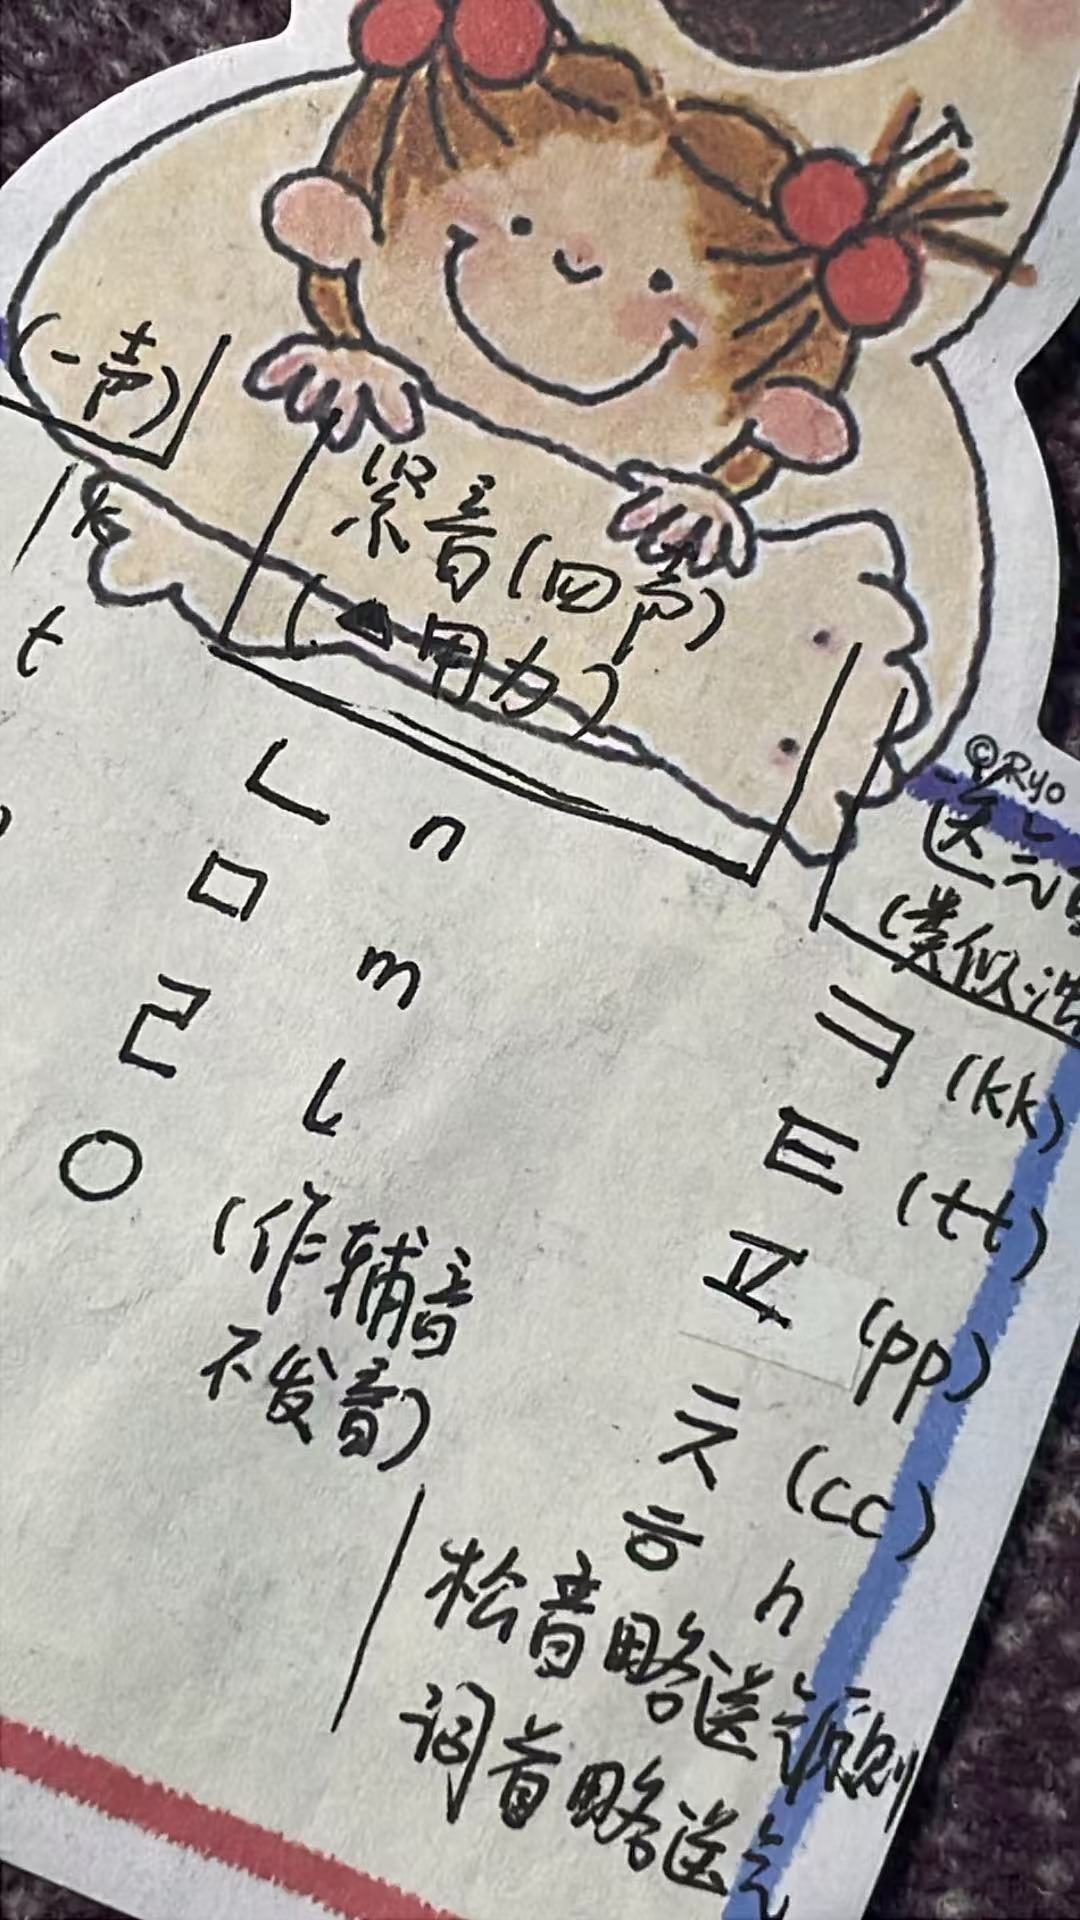 (一声)
紧音(四声)
(▲用力)
k
t
©Ryo
送气音
(类似浊
ㄴ n
ㅁ m
ㄹ l
ㅇ (作辅音
不发音)
ㅋ (kk)
ㅌ (tt)
ㅍ (pp)
ㅊ (cc)
ㅎ h
松音略送气原则
词首略送气